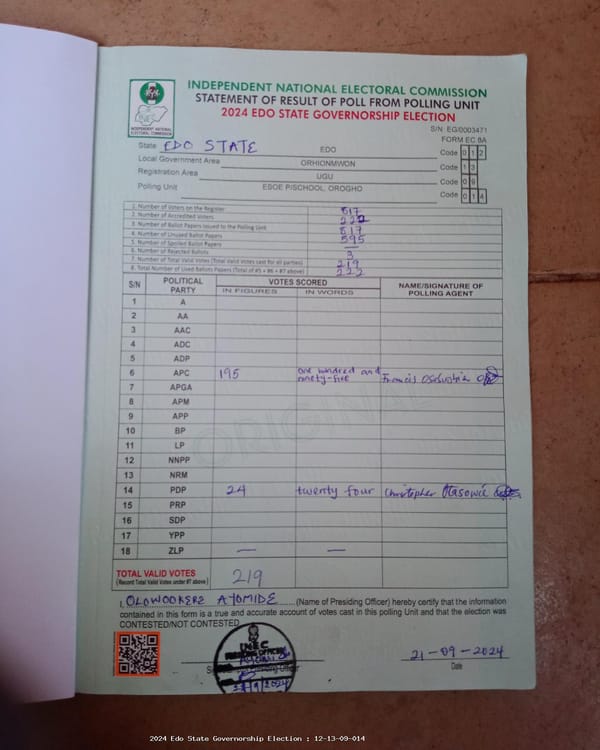 INDEPENDENT NATIONAL ELECTORAL COMMISSION
STATEMENT OF RESULT OF POLL FROM POLLING UNIT
2024 EDO STATE GOVERNORSHIP ELECTION
INDEPENDENT NATIONAL ELECTORAL COMMISSION
S/N EG/0003471
FORM EC 8A
State EDO STATE EDO Code 012
Local Government Area ORHIONMWON Code 13
Registration Area UGU Code 09
Polling Unit EBOE P/SCHOOL, OROGHO Code 014
1. Number of Voters on the Register 817
2. Number of Accredited Voters 222
3. Number of Ballot Papers Issued to the Polling Unit 817
4. Number of Unused Ballot Papers 595
5. Number of Spoiled Ballot Papers —
6. Number of Rejected Ballots 3
7. Number of Total Valid Votes (Total Valid Votes cast for all parties) 219
8. Total Number of Used Ballots Papers (Total of #5 + #6 + #7 above) 222
S/N POLITICAL PARTY VOTES SCORED NAME/SIGNATURE OF POLLING AGENT
IN FIGURES IN WORDS
1 A
2 AA
3 AAC
4 ADC
5 ADP
6 APC 195 one hundred and ninety-five Francis
7 APGA
8 APM
9 APP
10 BP
11 LP
12 NNPP
13 NRM
14 PDP 24 twenty four Christopher
15 PRP
16 SDP
17 YPP
18 ZLP — —
ORIGINAL
TOTAL VALID VOTES 219
(Record Total Valid Votes under #7 above)
I, OLOWOOKERE AYOMIDE (Name of Presiding Officer) hereby certify that the information
contained in this form is a true and accurate account of votes cast in this polling Unit and that the election was
CONTESTED/NOT CONTESTED
INEC
PRESIDING OFFICER
21-09-2024
Date
2024 Edo State Governorship Election : 12-13-09-014